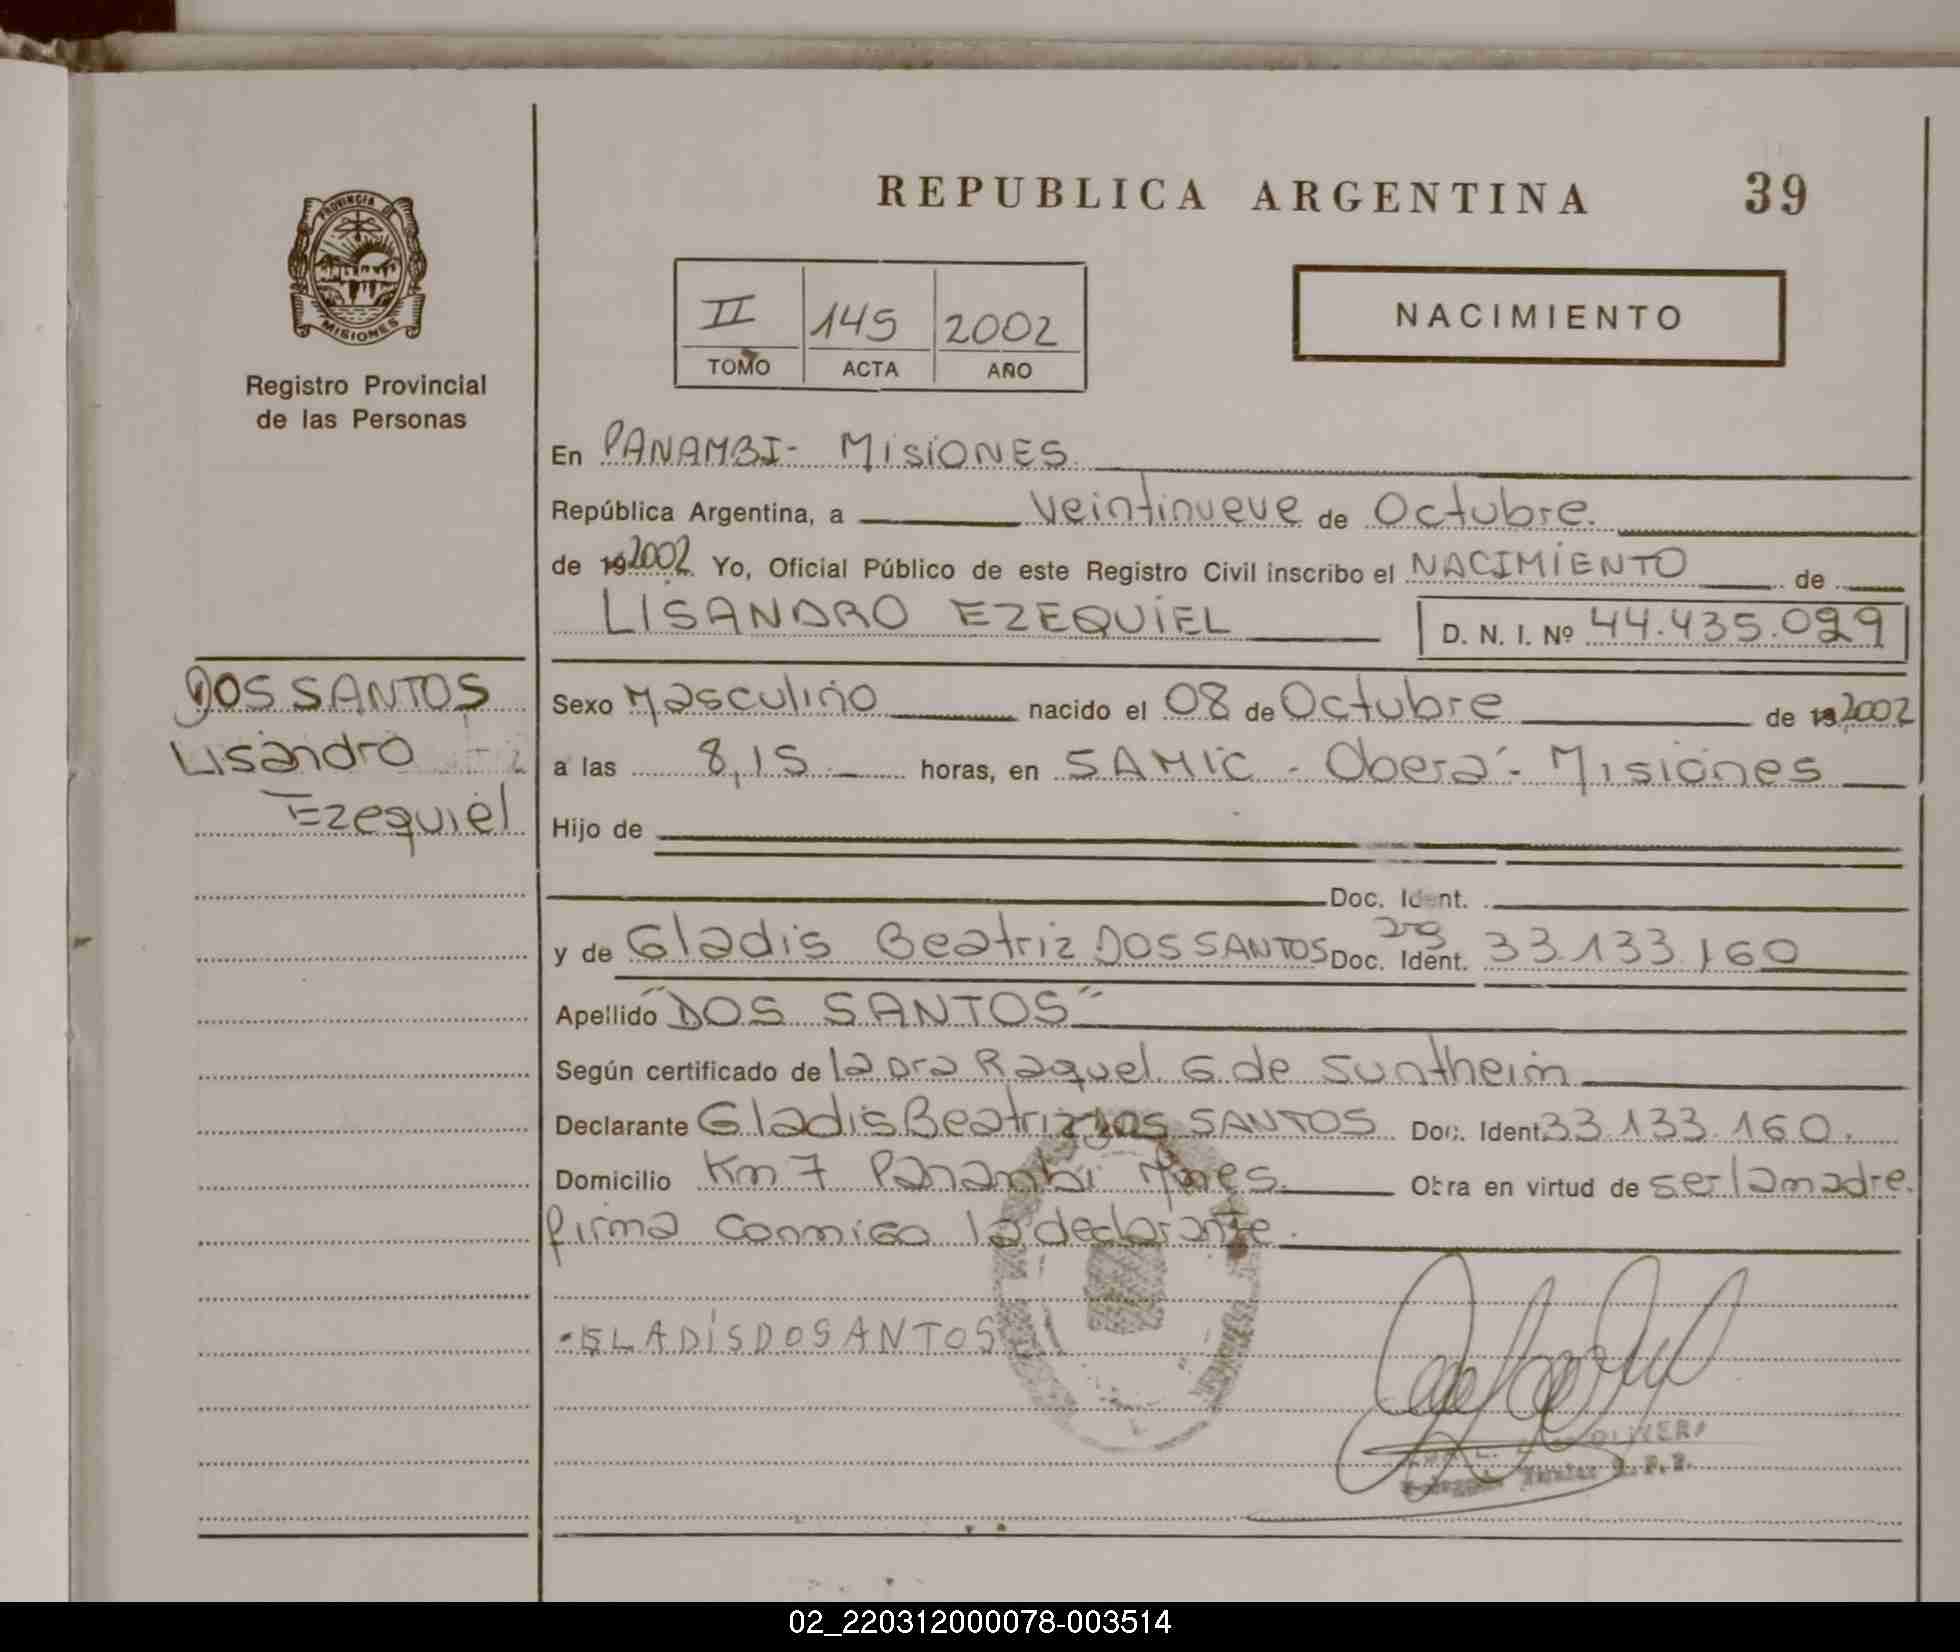 REPUBLICA ARGENTINA 39
PROVINCIA DE
MISIONES
Registro Provincial
de las Personas
II 145 2002
TOMO ACTA AÑO
NACIMIENTO
En PANAMBI- MISIONES
República Argentina, a veintinueve de Octubre.
de 192002 Yo, Oficial Público de este Registro Civil inscribo el NACIMIENTO de
LISANDRO EZEQUIEL D. N. I. Nº 44.435.099
DOS SANTOS
Lisandro
Ezequiel
Sexo Masculino nacido el 08 de Octubre de 192002
a las 8,15 horas, en SAMIC - Oberá - Misiones
Hijo de
Doc. Ident.
y de Gladis Beatriz DOS SANTOS Doc. Ident. 33.133.160
Apellido "DOS SANTOS"
Según certificado de la Dra Raquel G de Suntheim
Declarante Gladis Beatriz DOS SANTOS Doc. Ident. 33.133.160.
Domicilio Km 7 Panambi Mnes. Obra en virtud de ser la madre.
firma conmigo la declarante.
GLADISDOSANTOS
OLIVERA
02_220312000078-003514